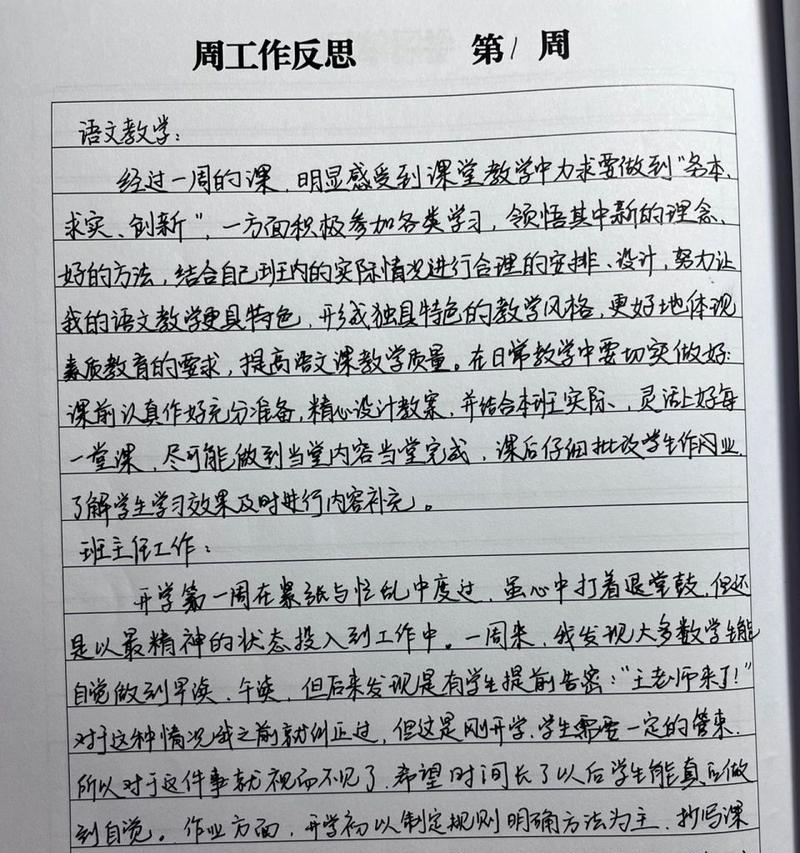 周工作反思 第1周
语文教学：
经过一周的课，明显感受到课堂教学中力求要做到“务本、
求实、创新”，一方面积极参加各类学习，领悟其中新的理念、
好的方法，结合自己班内的实际情况进行合理的安排、设计，努力让
我的语文教学更具特色，形成独具特色的教学风格，更好地体现
素质教育的要求，提高语文课教学质量。在日常教学中要切实做好：
课前认真作好充分准备，精心设计教案，并结合本班实际、，灵活上好每
一堂课，尽可能做到当堂内容当堂完成，课后仔细批改学生作业，
了解学生学习效果及时进行内容补充。
班主任工作：
开学第一周在紧张与忙乱中度过，虽心中打着退堂鼓，但还
是以最精神的状态投入到工作中。一周来，我发现大多数学生能
自觉做到早读、午读，但后来发现是有学生提前告密：“王老师来了！”
对于这种情况我之前就纠正过，但这是刚开学，学生需要一定的管束，
所以对于这件事就视而不见了，希望时间长了以后学生能真正做
到自觉。作业方面，开学初以制定规则明确方法为主，抄写课